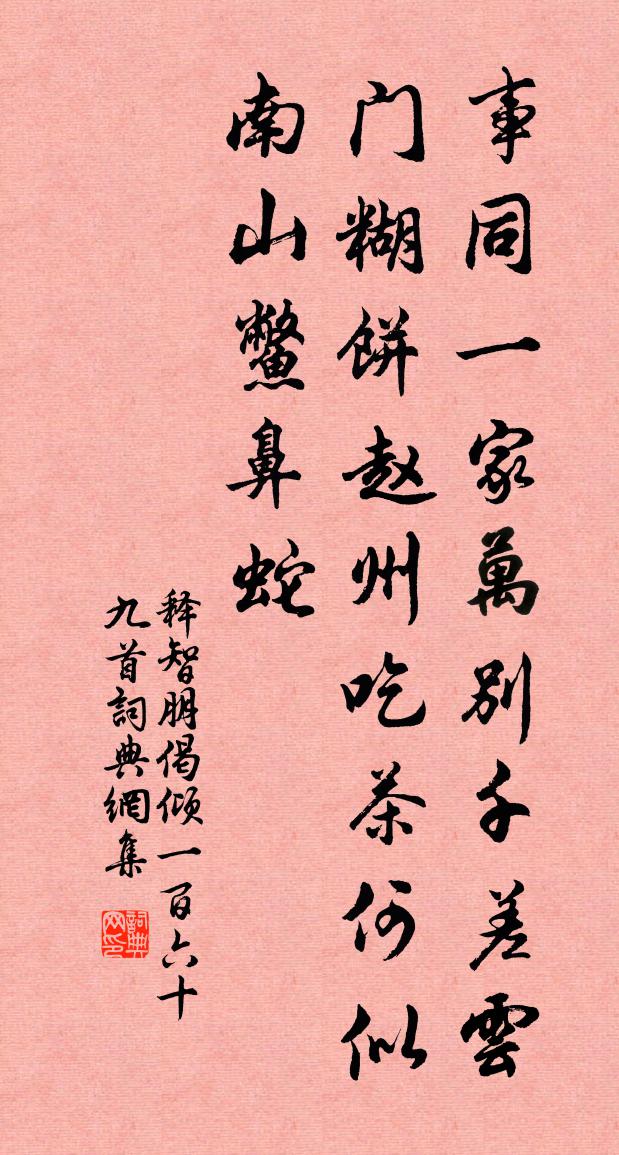 事同一家萬別千差雲
门糊餅赵州吃茶何似
南山鱉鼻蛇
释智朋偈倾一百六十
九首詞典網集
詞典网印